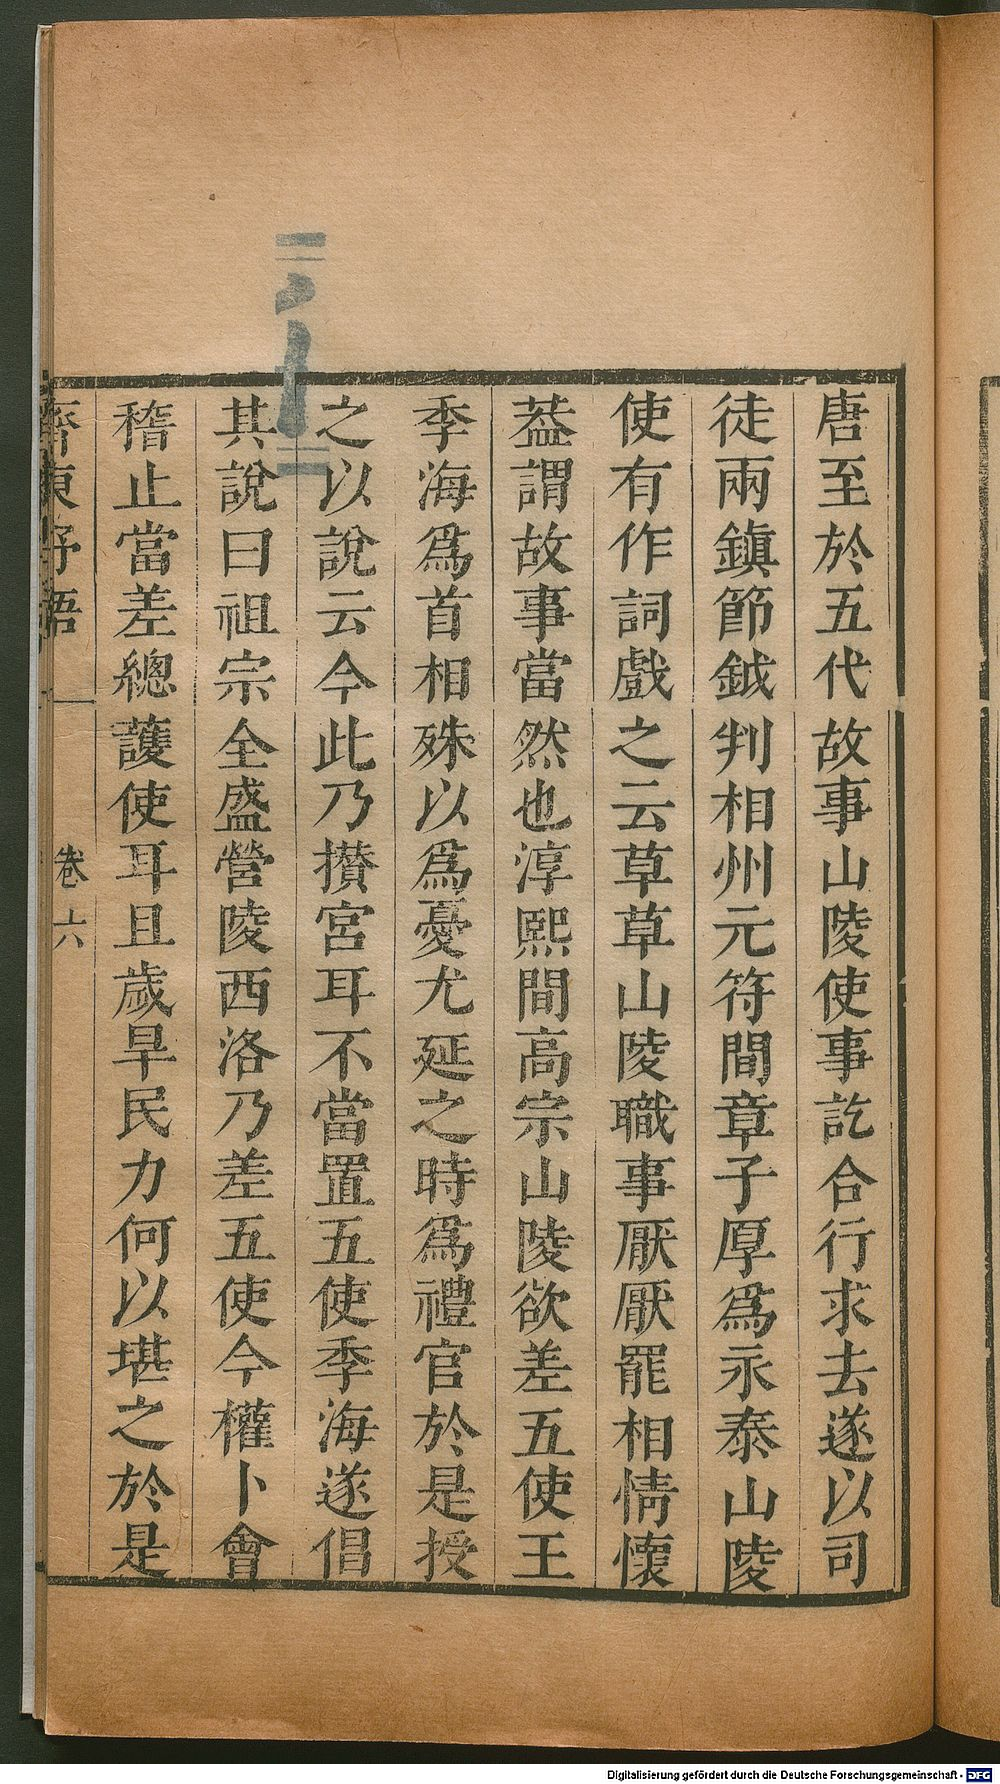 唐至於五代故事山陵使事訖合行求去遂以司
徒兩鎭節鉞判相州元符間章子厚爲永泰山陵
使有作詞戲之云草草山陵職事厭厭罷相情懷
葢謂故事當然也淳熙間高宗山陵欲差五使王
季海爲首相殊以爲憂尤延之時爲禮官於是授
之以說云今此乃攅宮耳不當置五使季海遂倡
其說曰祖宗全盛營陵西洛乃差五使今權卜會
稽止當差總護使耳且歲旱民力何以堪之於是
齊東野語 卷六
Digitalisierung gefördert durch die Deutsche Forschungsgemeinschaft - DFG